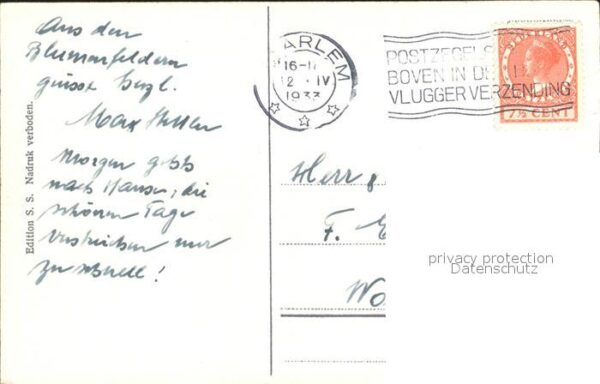 Aus den
Blumenfeldern
grüsst herzl.
Max
Morgen gehts
nach Hause, die
schönen Tage
verstrichen nur
zu schnell!
Edition S. S. Nadruk verboden.
HAARLEM
16-17
12 IV
1933
POSTZEGELS
BOVEN IN DE
VLUGGER VERZENDING
7½ CENT
Herr
F.
privacy protection
Datenschutz